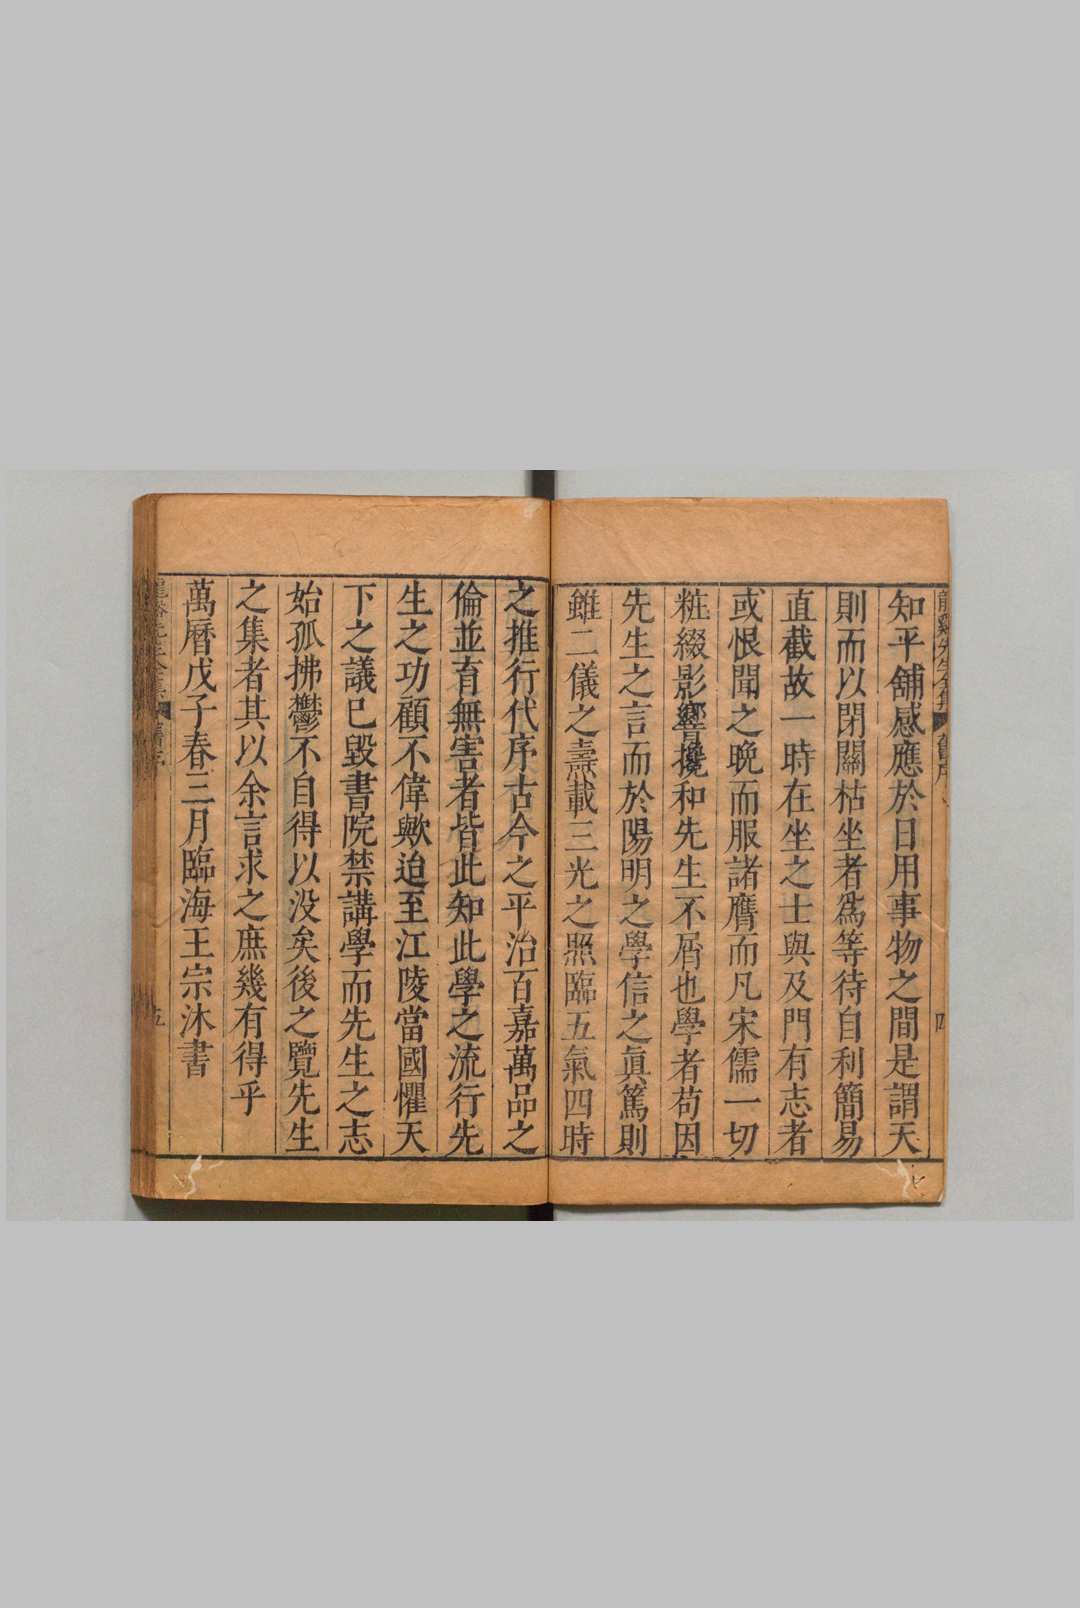 龍谿先生全集 舊序 四
知平舖感應於日用事物之間是謂天
則而以閉關枯坐者爲等待自利簡易
直截故一時在坐之士與及門有志者
或恨聞之晚而服諸膺而凡宋儒一切
粧綴影響攙和先生不屑也學者苟因
先生之言而於陽明之學信之眞篤則
雖二儀之燾載三光之照臨五氣四時
之推行代序古今之平治百嘉萬品之
倫並育無害者皆此知此學之流行先
生之功顧不偉歟迨至江陵當國懼天
下之議已毀書院禁講學而先生之志
始孤拂鬱不自得以没矣後之覽先生
之集者其以余言求之庶幾有得乎
萬曆戊子春三月臨海王宗沐書
五